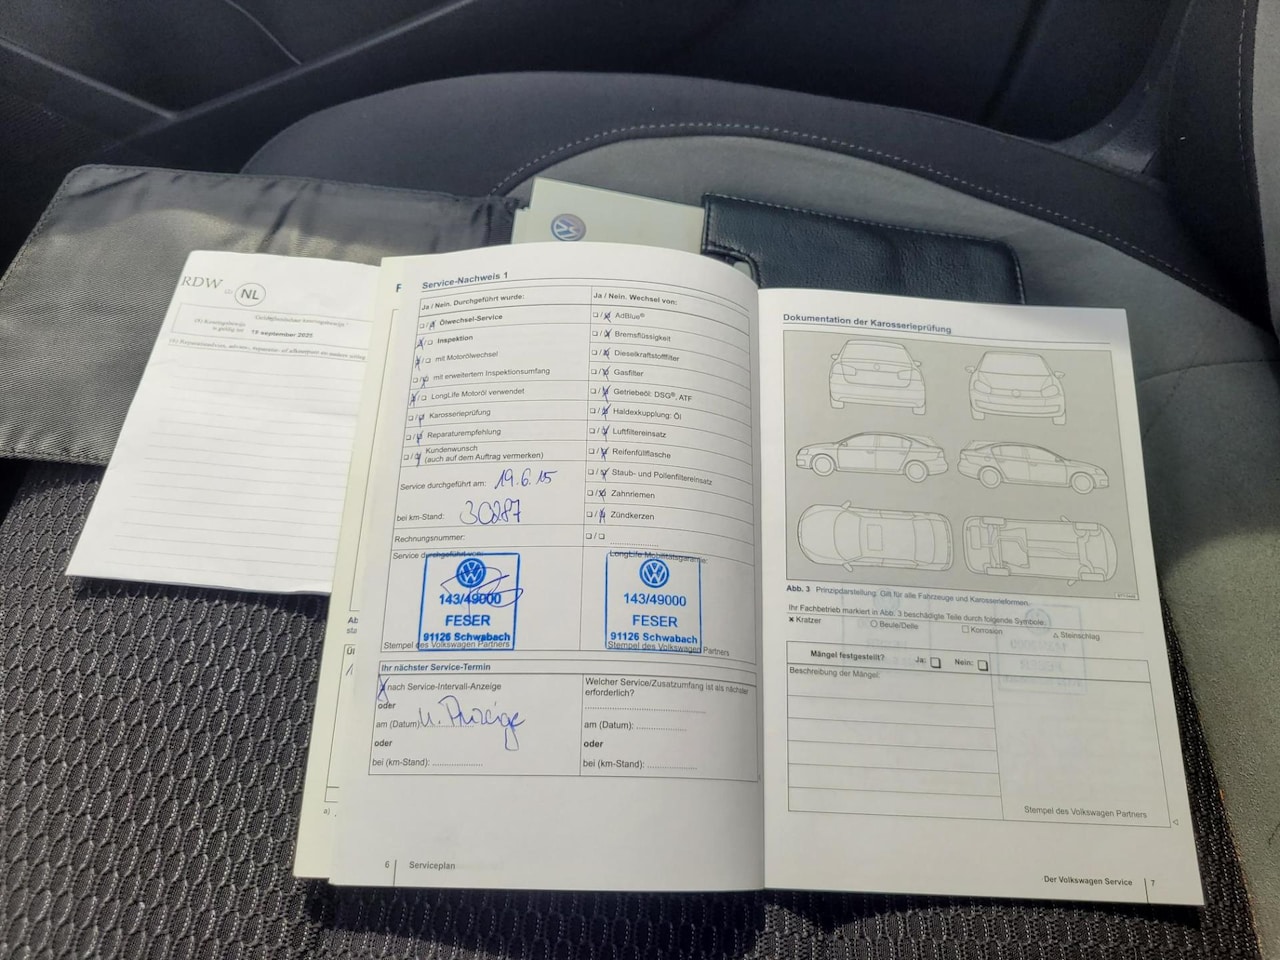 RDW
NL
19 september 2025
F
Service-Nachweis 1
Ja / Nein. Durchgeführt wurde:
Ölwechsel-Service
Inspektion
mit Motorölwechsel
mit erweitertem Inspektionsumfang
LongLife Motoröl verwendet
Karosserieprüfung
Reparaturempfehlung
Kundenwunsch
(auch auf dem Auftrag vermerken)
Service durchgeführt am: 19.6.15
bei km-Stand: 30287
Rechnungsnummer:
Service durchgeführt von:
143/49000
FESER
91126 Schwabach
Stempel des Volkswagen Partners
Ja / Nein. Wechsel von:
AdBlue®
Bremsflüssigkeit
Dieselkraftstofffilter
Gasfilter
Getriebeöl: DSG®, ATF
Haldexkupplung: Öl
Luftfiltereinsatz
Reifenfüllflasche
Staub- und Pollenfiltereinsatz
Zahnriemen
Zündkerzen
LongLife Mobilitätsgarantie:
143/49000
FESER
91126 Schwabach
Stempel des Volkswagen Partners
Ihr nächster Service-Termin
nach Service-Intervall-Anzeige
oder
am (Datum): n. Anzeige
oder
bei (km-Stand):
Welcher Service/Zusatzumfang ist als nächster
erforderlich?
am (Datum):
oder
bei (km-Stand):
6 Serviceplan
Dokumentation der Karosserieprüfung
Abb. 3 Prinzipdarstellung: Gilt für alle Fahrzeuge und Karosserieformen.
Ihr Fachbetrieb markiert in Abb. 3 beschädigte Teile durch folgende Symbole:
Kratzer Beule/Delle Korrosion Steinschlag
Mängel festgestellt? Ja: Nein:
Beschreibung der Mängel:
Stempel des Volkswagen Partners
Der Volkswagen Service 7